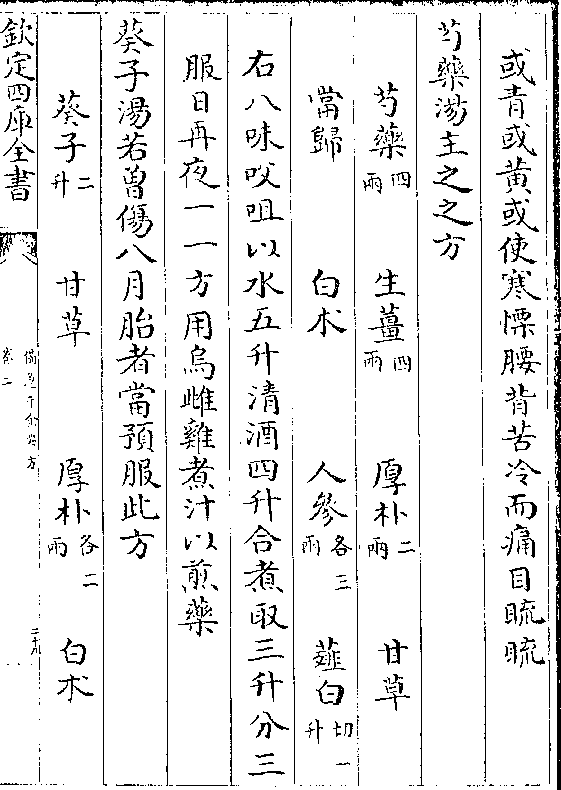 或青或黃或使寒慄腰背苦冷而痛目䀮䀮
芍藥湯主之之方
芍藥四兩 生薑四兩 厚朴二兩 甘草
當歸 白朮 人參各三兩 薤白切一升
右八味㕮咀以水五升清酒四升合煮取三升分三
服日再夜一一方用烏雌雞煮汁以煎藥
葵子湯若曽傷八月胎者當預服此方
葵子二升 甘草 厚朴各二兩 白朮
欽定四庫全書
備急千金要方
卷二